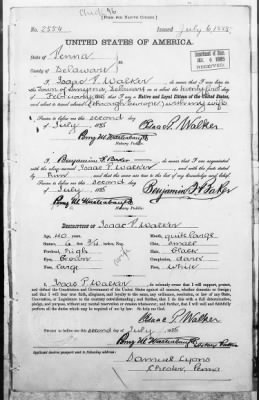 [FORM FOR NATIVE CITIZEN.]
No. 2554 Issued July 6, 1885
UNITED STATES OF AMERICA.
State of Penna
County of Delaware
RECEIVED
I, Isaac P. Walker, do swear that I was born in
Town of Smyrna, Delaware, on the
of February that I am a Native and Loyal Citizen of the United
States, and about to travel
Sworn to before me this second day
of July 1885 Isaac P. Walker
Notary Public.
I, Benjamin F. Baker, do swear that I am acquainted
with the above-named Isaac P. Walker, and with the facts stated
by him and that the same are true to the best of my knowledge and belief.
Sworn to before me this second day
of July 1885 Benjamin F. Baker
Notary Public.
DESCRIPTION OF Isaac P. Walker
Age, 40 years. Mouth,
Stature, 6 feet inches, Eng. Chin, small
Forehead, high Hair, black
Eyes, Brown Complexion, dark
Nose, large Face,
I, Isaac P. Walker do solemnly swear that I will support, protect,
and defend the Constitution and Government of the United States against all enemies, whether domestic or foreign;
and that I will bear true faith, allegiance, and loyalty to the same, any ordinance, resolution, or law of any State,
Convention, or Legislature to the contrary notwithstanding; and further, that I do this with a full determination,
pledge, and purpose, without any mental reservation or evasion whatsoever; and further, that I will well and faithfully
perform all the duties which may be required of me by law: So help me God.
Isaac P. Walker
Sworn to before me this second day July 1885
Notary Public
Applicant desires passport sent to following address:
Samuel Lyons
Chester, Penna